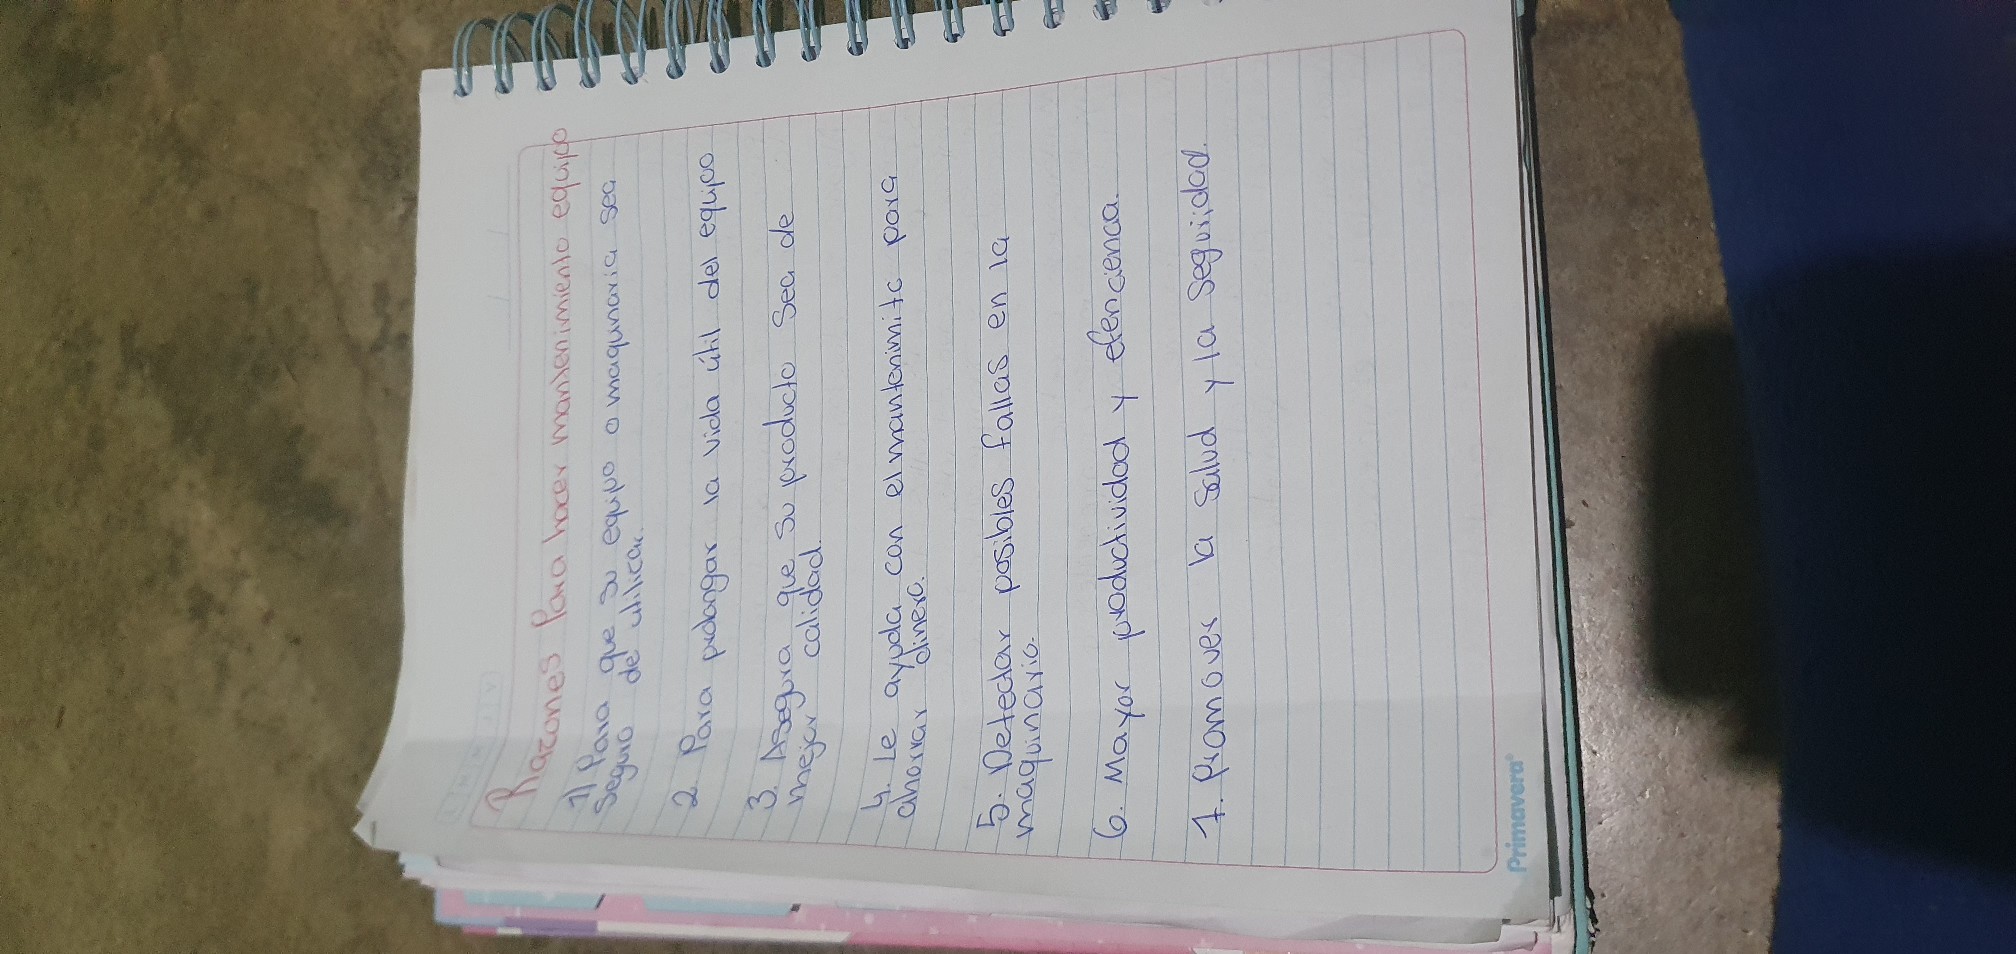 Razones Para hacer mantenimiento equipo
1) Para que su equipo o maquinaria sea
seguro de utilicar.
2. Para prolongar la vida útil del equipo
3. Asegura que su producto sea de
mejor calidad.
4. Le ayuda con el mantenimito para
ahorrar dinero.
5. Detectar posibles fallas en la
maquinario.
6. Mayor productividad y efenciencia.
7. Promover la salud y la seguridad.
Primavera